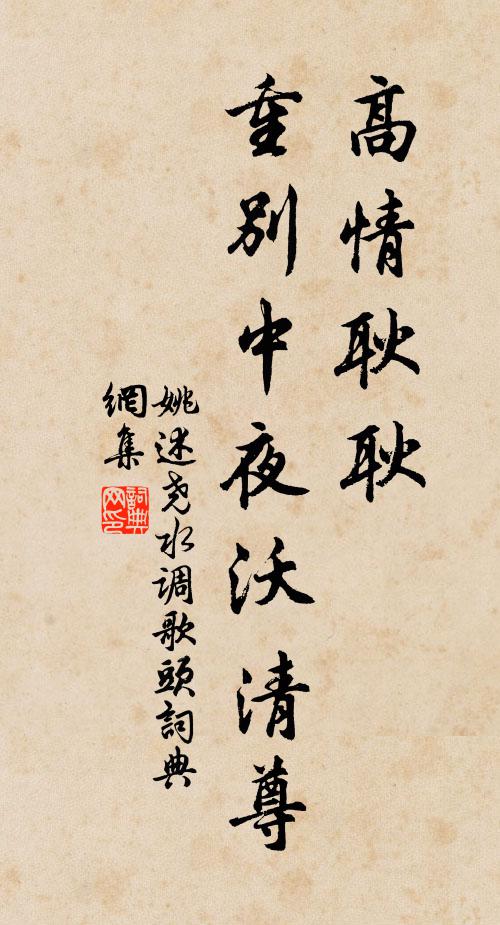 高情耿耿
重别中夜沃清尊
姚述尧水调歌頭詞典
網集
詞典
网印